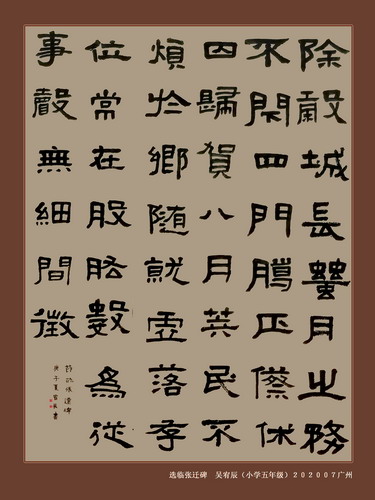 除穀城長蠶月之務
不閇四門臈正傺休
囚歸賀八月筭民不
煩於鄉隨就虛落存
位常在股肱數為從
事聲無細間徵
節臨張遷碑
庚子夏宥辰書
选临张迁碑 吴宥辰（小学五年级）202007广州